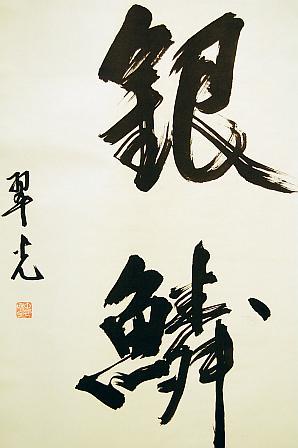 銀鱗
翠光